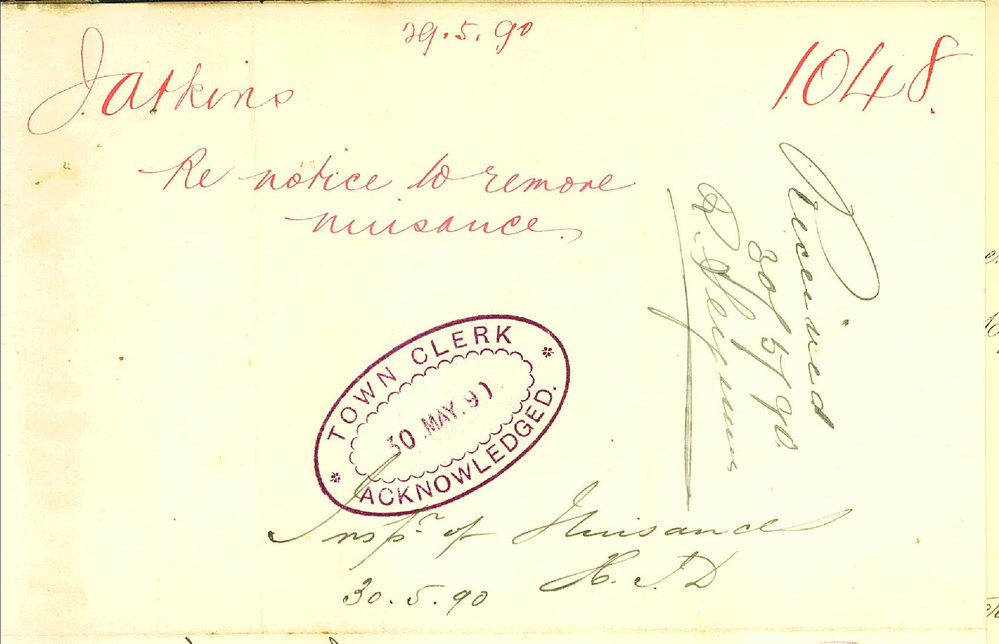 29.5.90
1048.
J Atkins
Re notice to remove
nuisance.
Received
30/5/90.
TOWN CLERK
30 MAY. 90
ACKNOWLEDGED.
Inspr. of Nuisance
H.J.D
30.5.90